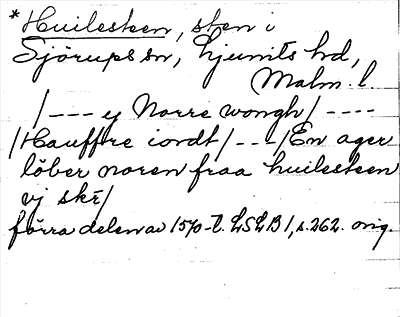 *Huilesteen, sten i
Sjörups sn, Ljunits hd,
Malm. l.
/ - - - y Norre wongh / - - - -
/ Hauffre iordt / - - - / En ager
löber noren fraa huilesteen
vj ske /
förra delen av 1570-t. LSLB 1, s. 262. orig.